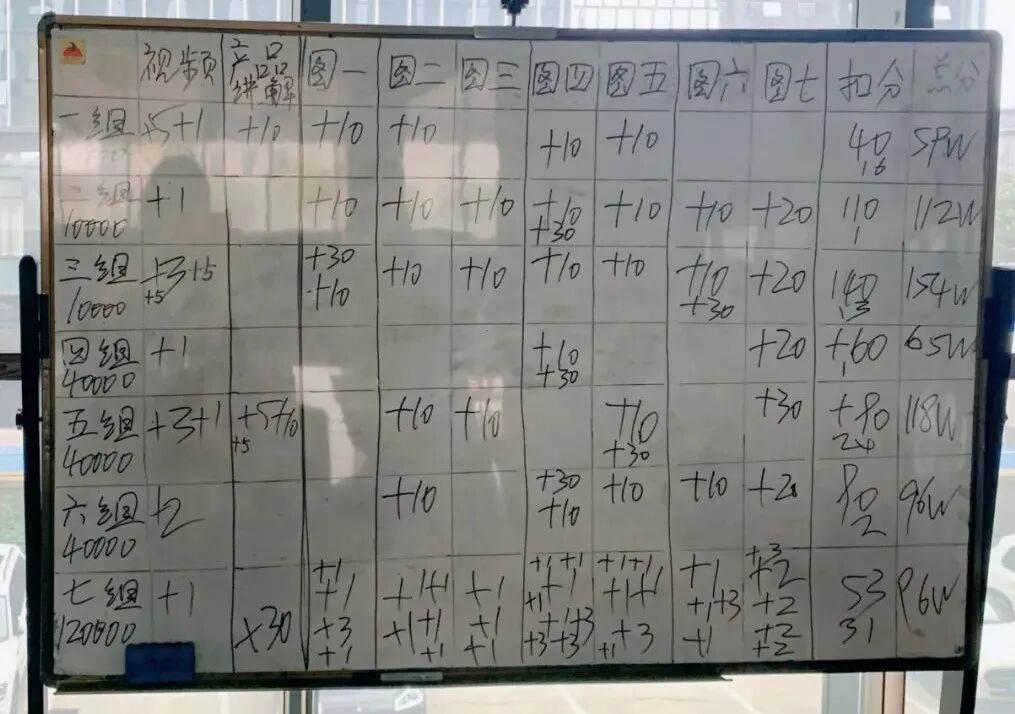 视频 产品讲解 图一 图二 图三 图四 图五 图六 图七 扣分 总分
一组 +5+1 +10 +10 +10 +10 +10 40 59W
16
二组 +1 +10 +10 +10 +10 +10 +10 +20 110 112W
10000 +30 1
三组 +3+5 +30 +10 +10 +10 +10 +10 +20 140 154W
10000 +5 +10 +30 13
四组 +1 +10 +20 +60 65W
40000 +30 1
五组 +3+1 +5+10 +10 +10 +10 +30 +90 118W
40000 +5 +30 24
六组 +2 +10 +30 +10 +10 +20 90 96W
40000 +10 2
七组 +1 +1 +1+1 +1 +1+1 +1+1 +1 +3 53 96W
+1 +1 +1+1 +1+3 +2
120000 ×30 +3 +1+1 +1 +1+3 +3 +1 +2 31
+1 +1 +1 +3+3 +1 +2